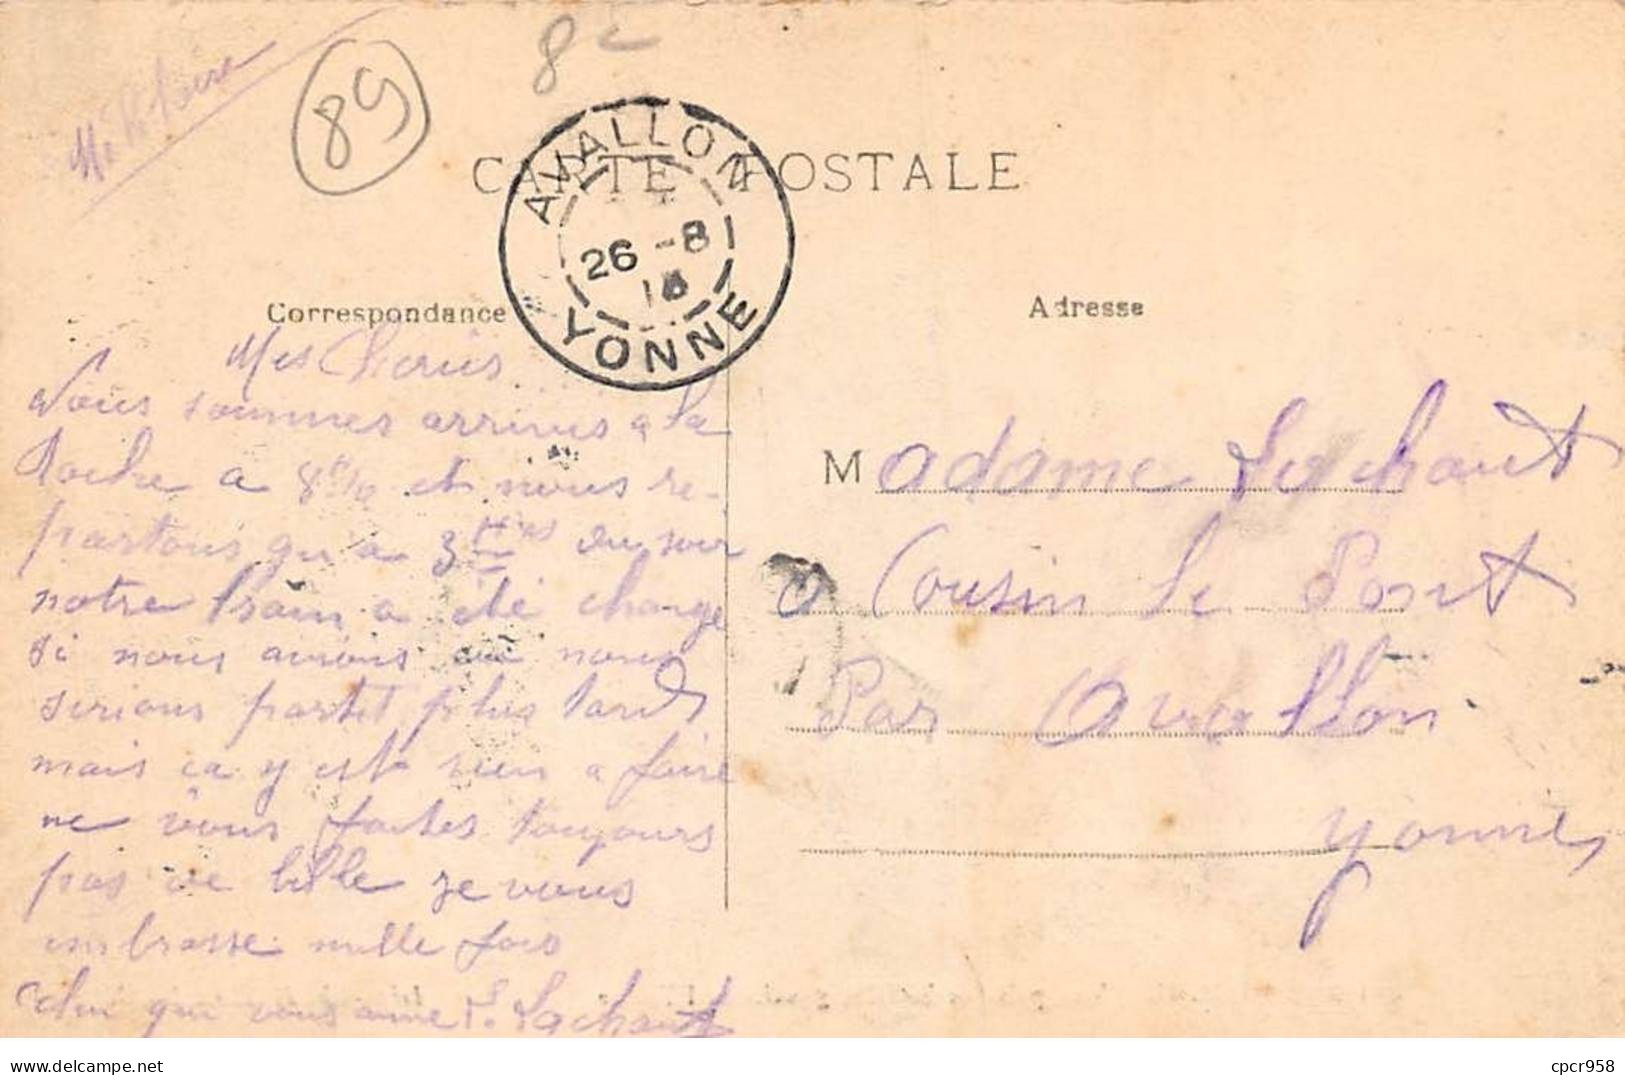 89
8
CARTE POSTALE
AVALLON
26 - 8
YONNE
Correspondance
Adresse
Mes Cheris
Nous sommes arrivés a la
Roche a 8h½ et nous re-
partons qu a 3 Hres du soir
notre train a été changé
si nous avions su nous
serions partit plus tard
mais ca y est rien a faire
ne vous faites toujours
pas de bille je vous
embrasse mille fois
celui qui vous aime P. Lachaut
Madame Lachaut
a Cousin le Pont
Par Avallon
Yonne
Delcampe.net
cpcr958